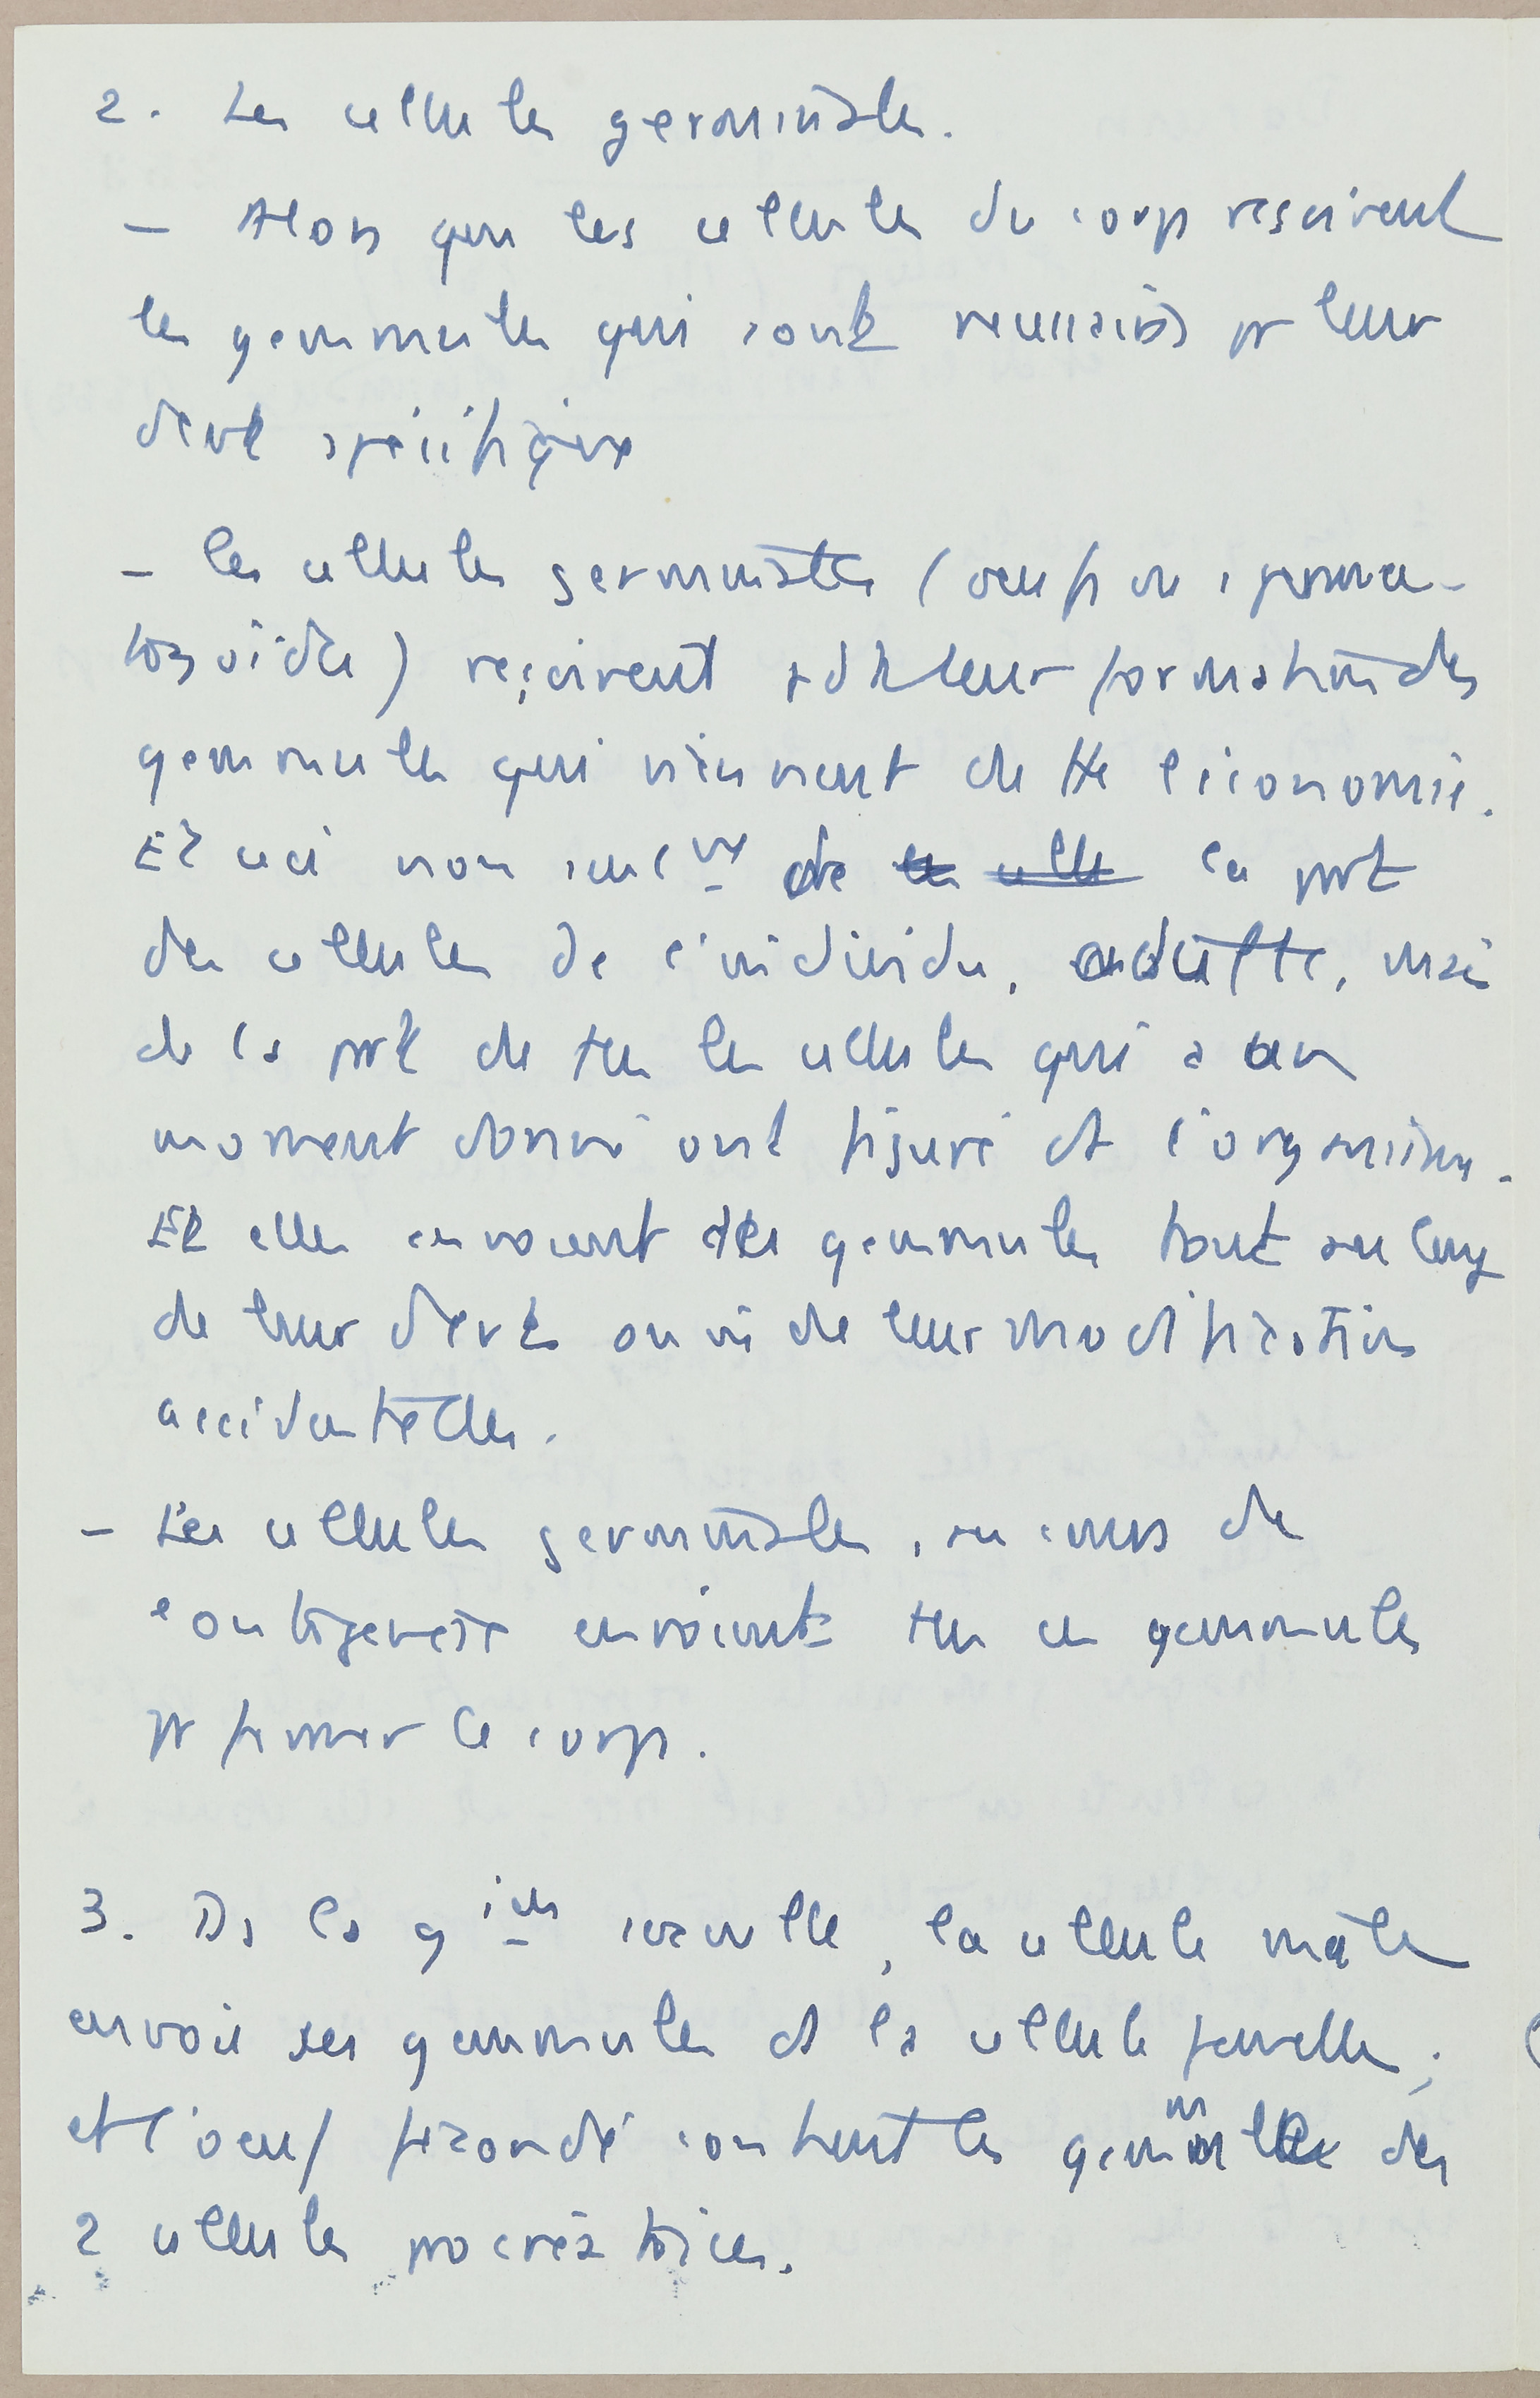 2. Les cellules germinales.
– Alors que les cellules du corps reçoivent
les gemmules qui sont necessaires pr leur
devt spécifique
– les cellules germinales (oeufs ou sperma-
tozoïdes) reçoivent ds leur formation des
gemmules qui viennent de tte l'économie.
Et ceci non seulmt de la part
des cellules de l'individu, adulte, mais
de la part de ttes les cellules qui à un
moment donné ont figuré ds l'organisme.
Et elles envoient des gemmules tout au long
de leur devt ou de leur modifications
accidentelles.
– Les cellules germinales, au cours de
l'ontogenèse envoient ttes ces gemmules
pr former le corps.
3. Ds la gion sexuelle, la cellule mâle
envoie ses gemmules ds la cellule femelle;
et l'oeuf fécondé contient les gemmules des
2 cellules procréatrices.